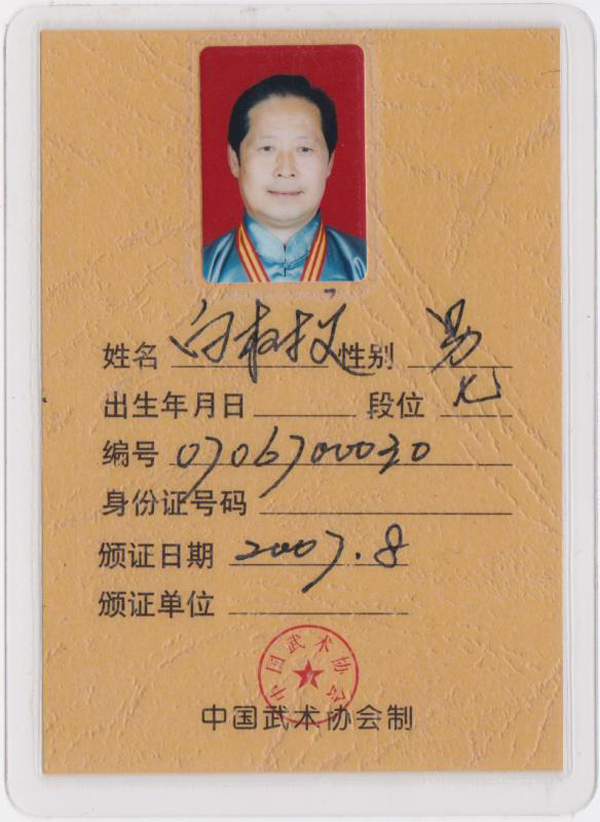 姓名 性别 男
出生年月日 段位 七
编号 0706700030
身份证号码
颁证日期 2007.8
颁证单位
中国武术协会
中国武术协会制